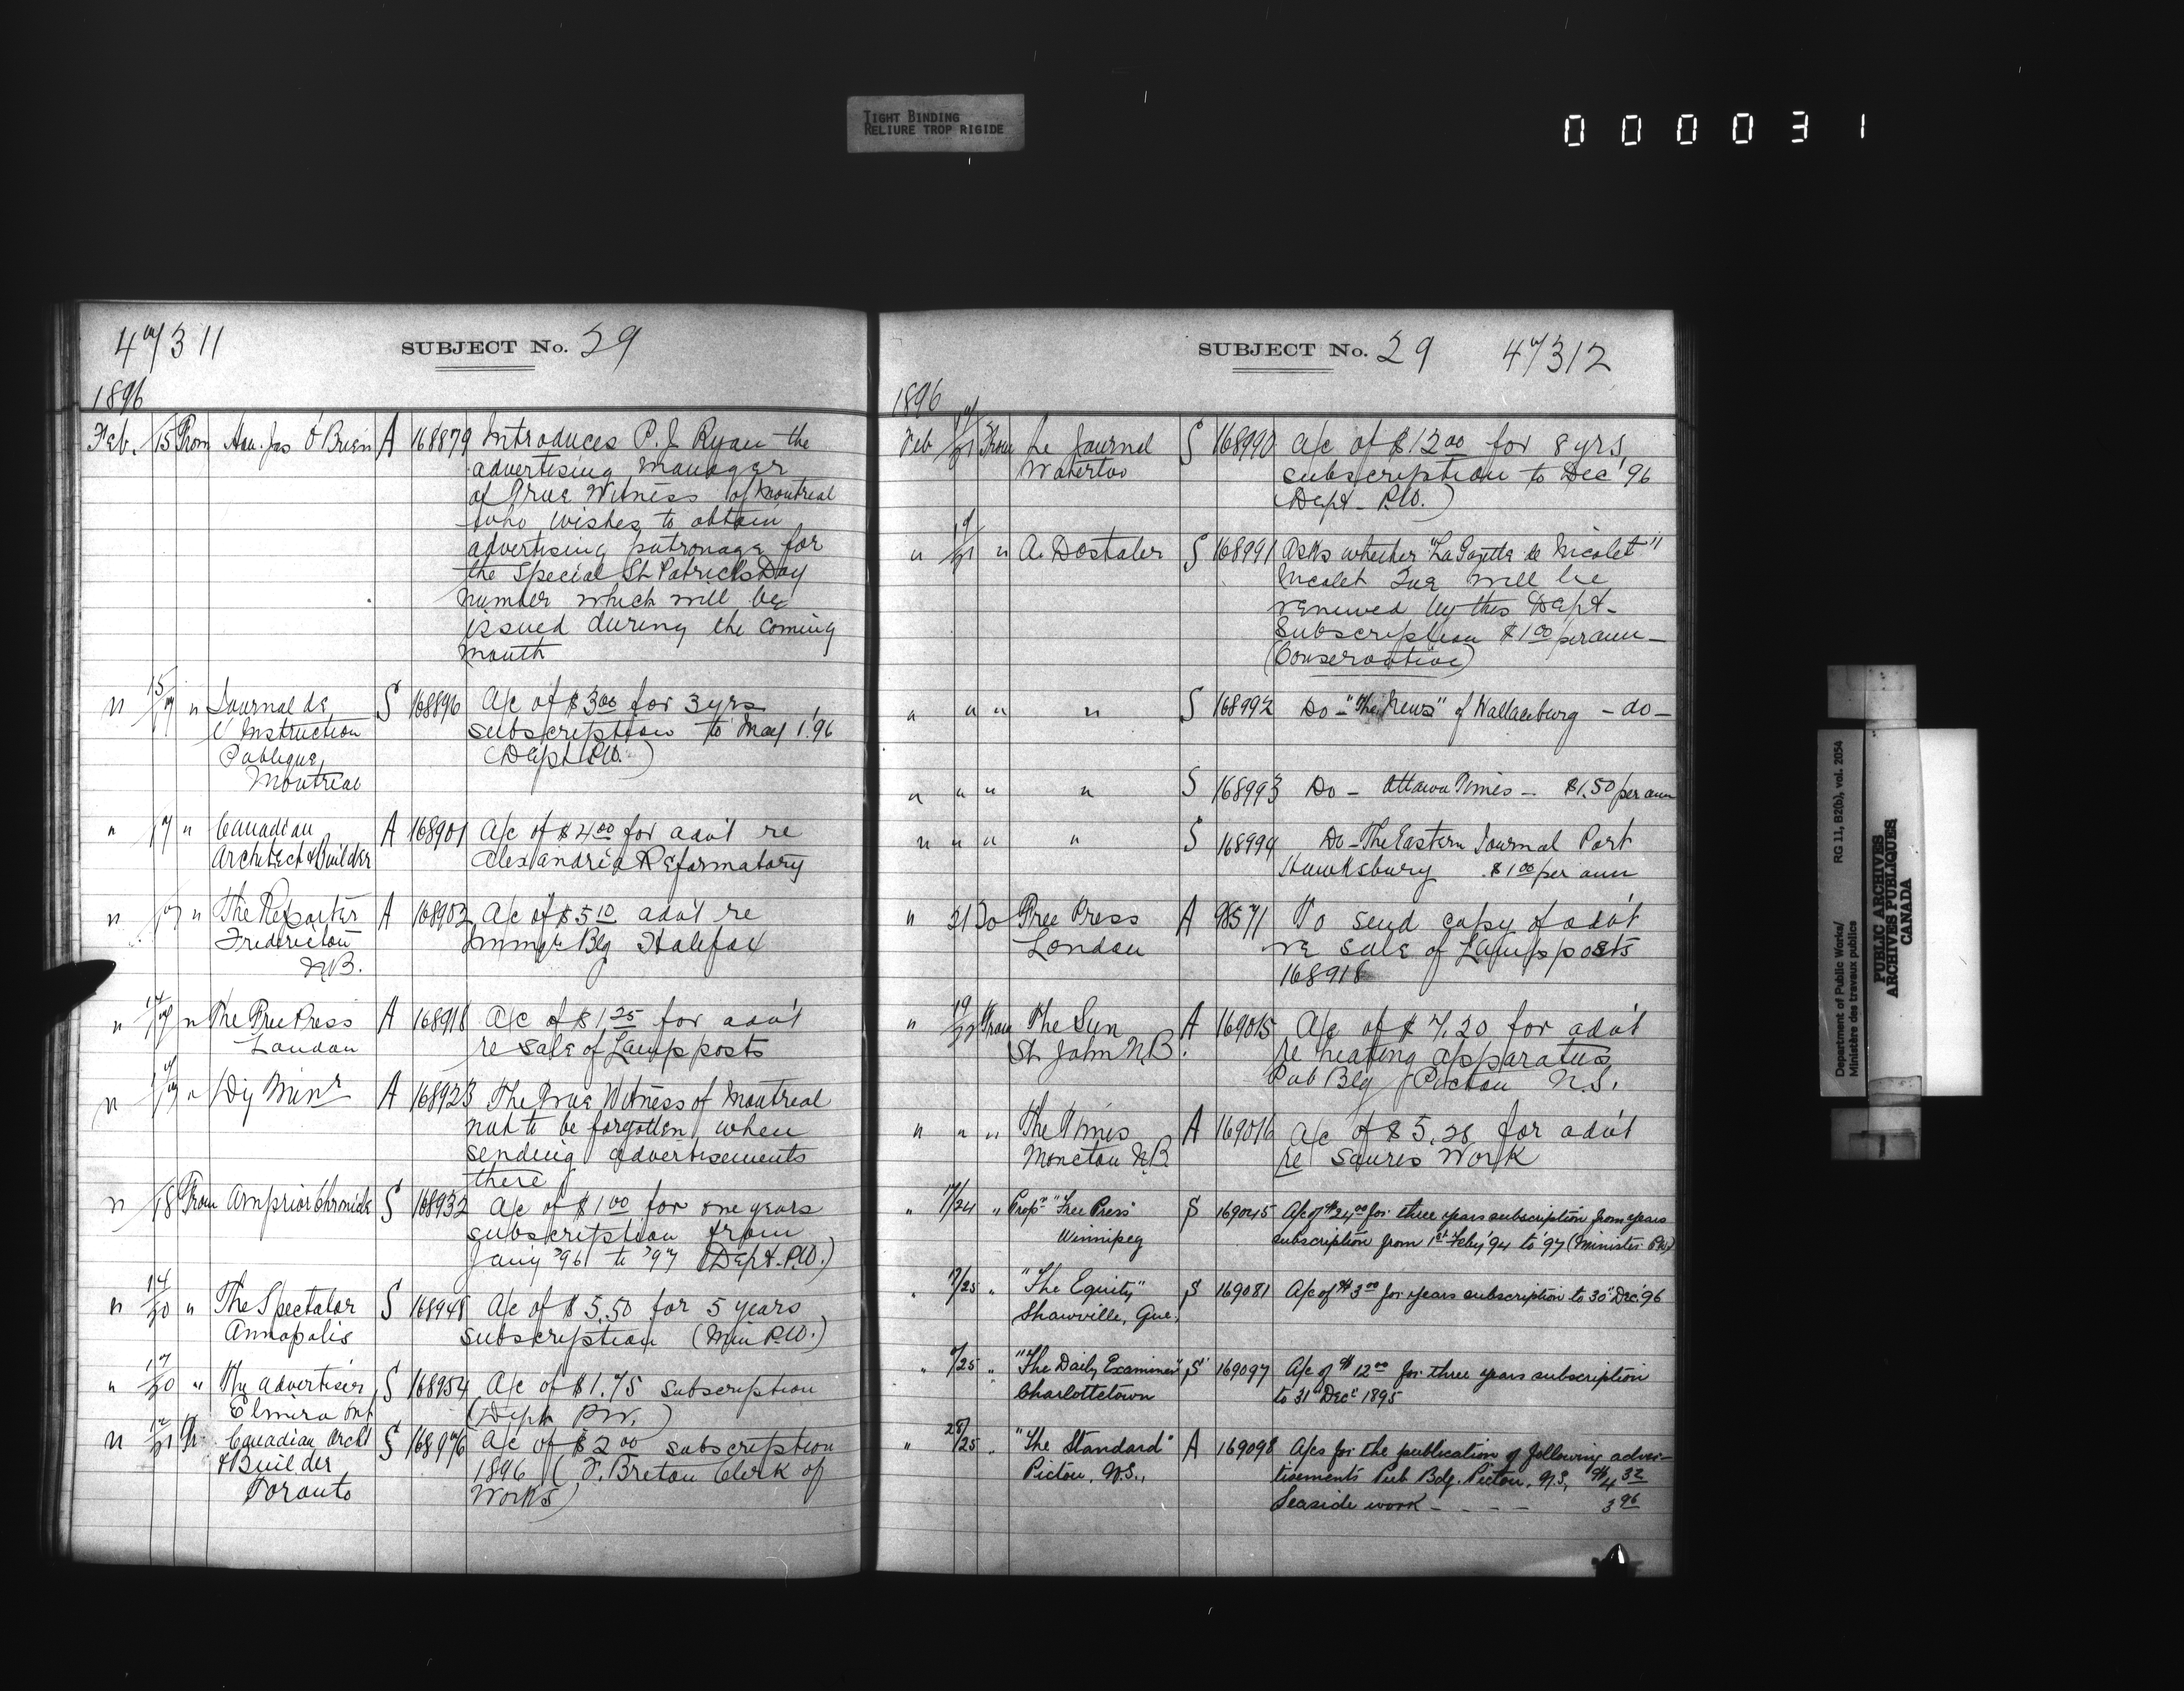 TIGHT BINDING
RELIURE TROP RIGIDE
000031
47311 SUBJECT No. 29
1896
Feb. 15 From Hon. Jas O'Brien A 168879 Introduces P. J. Ryan the
advertising manager
of True Witness of Montreal
who wishes to obtain
advertising patronage for
the special St Patricks Day
number which will be
issued during the coming
month
" 15/17 " Journal de S 168896 A/c of $3.00 for 3 yrs
l'Instruction subscription to May 1. '96
Publique (Dept P.W.)
Montreal
" 17 " Canadian A 168901 A/c of $4.00 for adv't re
Architect & Builder Alexandria Reformatory
" 17 " The Reporter A 168902 A/c of $5.10 adv't re
Fredericton Immgr Blg Halifax
N.B.
" 17 " The Free Press A 168918 A/c of $1.25 for adv't
London re sale of Lamp posts
" " Dy Minr A 168923 The True Witness of Montreal
not to be forgotten when
sending advertisements
there
" 18 From Arnprior Chronicle S 168932 A/c of $1.00 for one years
subscription from
Jany '96 to '97 (Dept. P.W.)
" 14/20 " The Spectator S 168948 A/c of $5.50 for 5 years
Annapolis subscription (Min P.W.)
" 17/20 " The Advertiser S 168954 A/c of $1.75 subscription
Elmira Ont (Dept P.W.)
" Canadian Archt S 168976 A/c of $2.00 subscription
& Builder 1896 (T. Breton Clerk of
Toronto Works)
SUBJECT No. 29 47312
1896
Feb 17/21 From Le Journal S 168990 A/c of $12.00 for 8 yrs
Waterloo subscription to Dec '96
(Dept. P.W.)
" 19/21 " A. Dostaler S 168991 Asks whether "La Gazette de Nicolet"
Nicolet Que will be
renewed by this Dept-
Subscription $1.00 per ann-
(Conservative)
" " " " S 168992 Do - "The News" of Wallaceburg - do -
" " " " S 168993 Do - Ottawa Times - $1.50 per ann
" " " " S 168994 Do - The Eastern Journal Port
Hawksbury $1.00 per ann
" 21 To Free Press A 98571 To send copy of adv't
London re sale of Lamp posts
168918
" 19/22 From The Sun A 169015 A/c of $7.20 for adv't
St. John N.B. re heating apparatus
Pub Blg Pictou N.S.
" " " The Times A 169016 A/c of $5.28 for adv't
Moncton N.B. re Souris Work
" 17/24 " Propr "Free Press" S 169045 A/c of $24.00 for three years subscription from years
Winnipeg subscription from 1st Feby '94 to '97 (Minister P.W.)
" /25 " "The Equity" S 169081 A/c of $3.00 for years subscription to 30" Dec. '96
Shawville, Que.
" /25 " "The Daily Examiner" S 169097 A/c of $12.00 for three years subscription
Charlottetown to 31" Decr 1895
" /25 " "The Standard" A 169098 A/cs for the publication of following adver-
Pictou, N.S., tisements Pub. Bdg. Pictou, N.S, $4.32
Seaside work - - - - 3.96
Department of Public Works/ RG 11, B2(b), vol. 2054
Ministère des travaux publics
PUBLIC ARCHIVES
ARCHIVES PUBLIQUES
CANADA